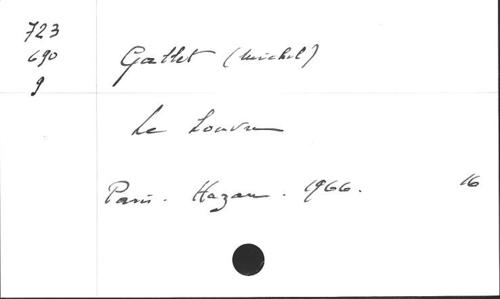 723
690 Gallet (Michel)
9
Le Louvre
Paris. Hazan. 1966. 16